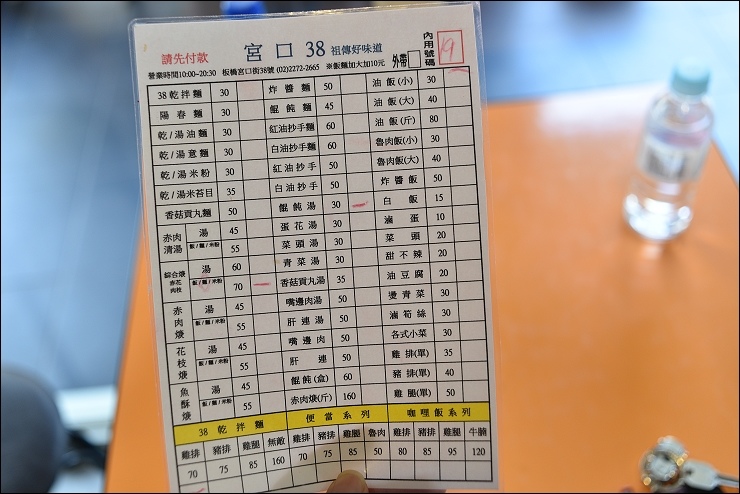 請先付款 宮口 38 祖傳好味道 外帶 內用號碼 19
營業時間10:00~20:30 板橋宮口街38號 (02)2272-2665 ※飯麵加大加10元
38 乾拌麵 30
陽春麵 30
乾/湯油麵 30
乾/湯意麵 30
乾/湯米粉 30
乾/湯米苔目 35
香菇貢丸麵 50
赤肉清湯 湯 45
飯/麵/米粉 55
綜合焿 赤花肉枝 湯 60
飯/麵/米粉 70
赤肉焿 湯 45
飯/麵/米粉 55
花枝焿 湯 45
飯/麵/米粉 55
魚酥焿 湯 45
飯/麵/米粉 55
炸醬麵 50
餛飩麵 45
紅油抄手麵 60
白油抄手麵 60
紅油抄手 50
白油抄手 50
餛飩湯 35
蛋花湯 30
菜頭湯 30
青菜湯 30
香菇貢丸湯 35
嘴邊肉湯 50
肝連湯 50
嘴邊肉 50
肝連 50
餛飩(盒) 60
赤肉焿(斤) 160
油飯(小) 30
油飯(大) 40
油飯(斤) 80
魯肉飯(小) 30
魯肉飯(大) 40
炸醬飯 50
白飯 15
滷蛋 10
菜頭 20
甜不辣 20
油豆腐 20
燙青菜 30
滷筍絲 30
各式小菜 30
雞排(單) 35
豬排(單) 40
雞腿(單) 50
38 乾拌麵 便當系列 咖哩飯系列
雞排 豬排 雞腿 無敵 雞排 豬排 雞腿 魯肉 雞排 豬排 雞腿 牛腩
70 75 85 160 70 75 85 50 80 85 95 120